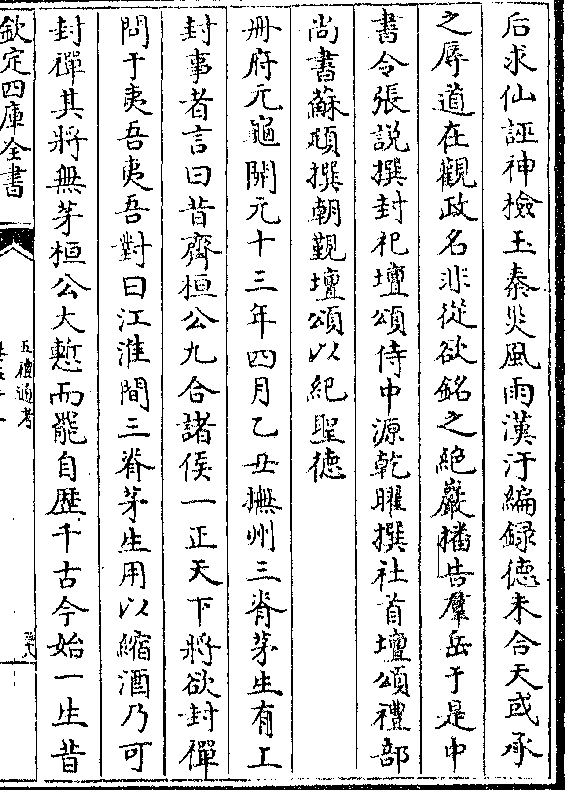 后求仙誣神檢玉秦災風雨漢汙編録德未合天或承
之辱道在觀政名非從欲銘之絶巖播告羣岳于是中
書令張説撰封祀壇頌侍中源乾曜撰社首壇頌禮部
尚書蘇頲撰朝覲壇頌以紀聖德
冊府元龜開元十三年四月乙丑撫州三脊茅生有上
封事者言曰昔齊桓公九合諸侯一正天下將欲封禪
問于夷吾夷吾對曰江淮間三脊茅生用以縮酒乃可
封禪其將無茅桓公大慙而罷自歴千古今始一生昔
欽定四庫全書
五禮通考